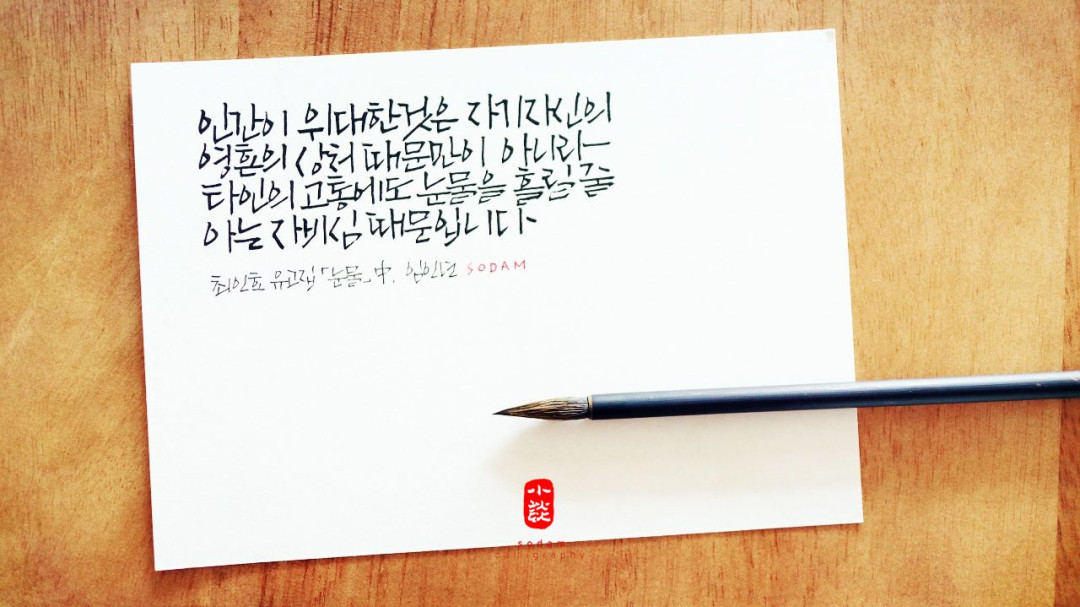 인간이 위대한것은 자기자신의
영혼의 상처 때문만이 아니라
타인의 고통에도 눈물을 흘릴 줄
아는 자비심 때문입니다
최인호 유고집「눈물」中. 임인년 SODAM
小
談
sodam
calligraphy